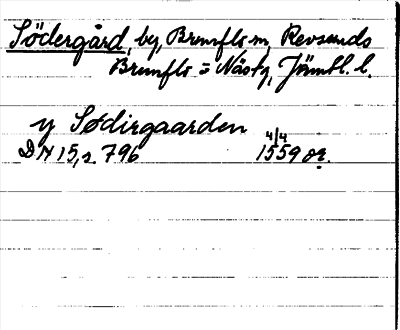 Södergård, by, Brunflo sn, Revsunds
Brunflo o Näs tg, Jämtl. l.
y Sødirgaarden
DN 15, s. 796 4/4 1559 or.